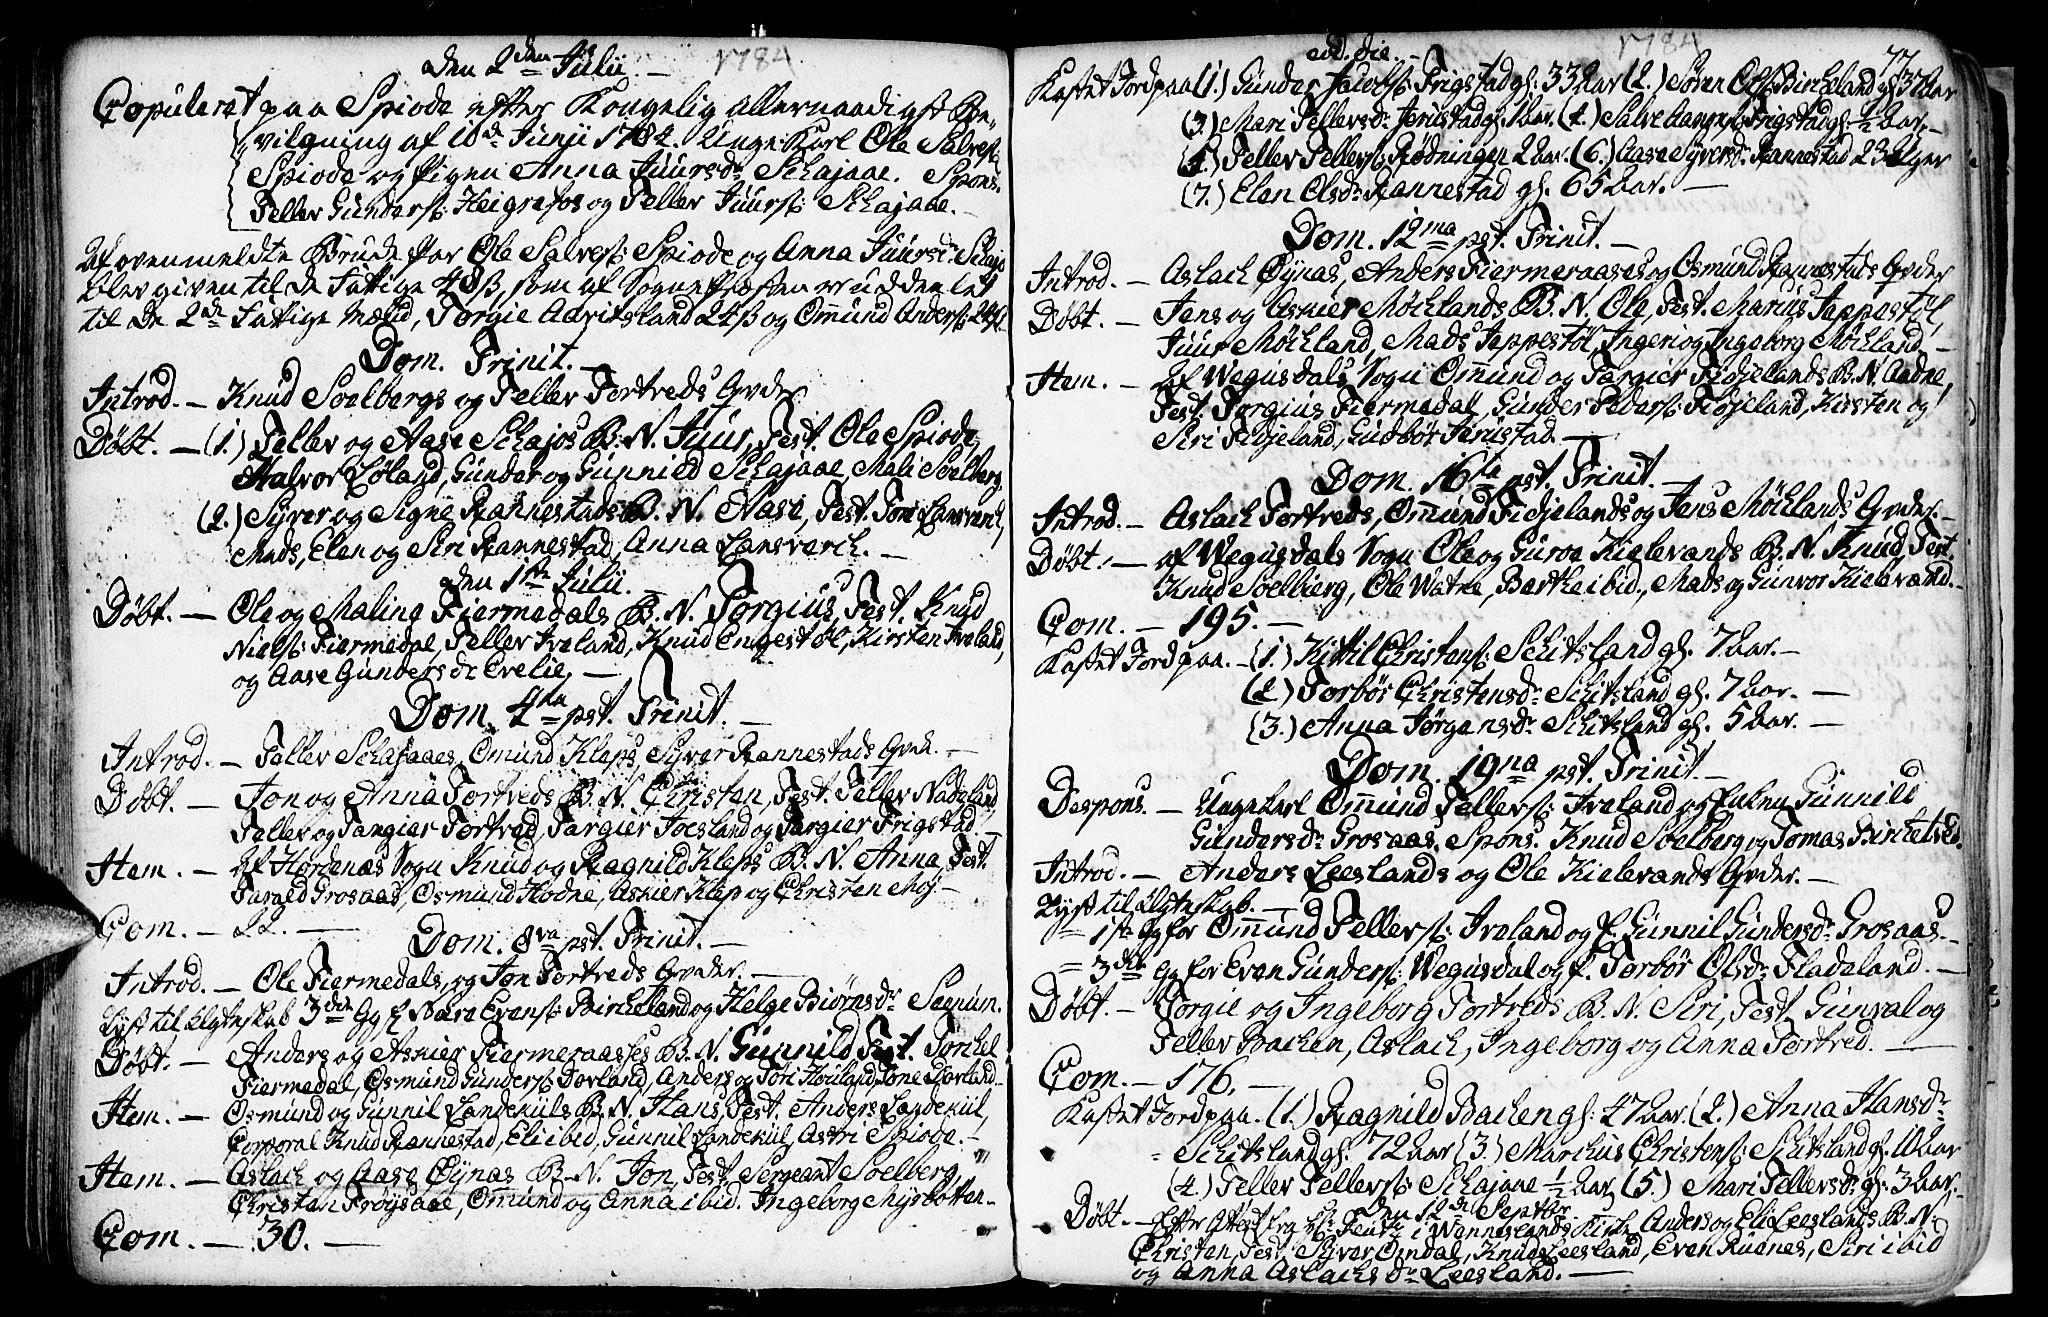 1784.
den 2den Julii. —
Copuleret paa Spiode efter Kongelig allernaadigst Be-
vilgning af 18de Junii 1784. Unge Karl Ole Salves:
Spiode og Pigen Anna Juursdr Schajaae. Spons.
Teller Gunders: Heigrefos og Teller Juurs: Schajaae. —
Af ovenmeldte Brude Par Ole Salves: Spiode og Anna Juursdr Schaj:
blev given til de Fattige 48ß, som af Sogne Præsten er uddeelet
til de 2de Fattige Mælid, Torgie Aavitsland 24ß og Omund Anders: 24ß.
Dom. Trinit. —
Introd. — Knud Soelbergs og Teller Tortreds Qvder.
Døbt. — (1.) Teller og Aase Schajos B. N. Juur, Test. Ole Spiode,
Halvor Løland, Gunder og Gunnild Schajaae, Mali Soelberg,
(2.) Syver og Signe Rannestads B. N. Aase, Test. Tore Lansverch,
Mads, Elen og Siri Rannestad, Anna Lansverch. —
den 1ste Julii. —
Døbt. — Ole og Maline Fiermedals B. N. Torgius, Test. Knud
Niels: Fiermedal, Teller Iveland, Knud Engestøl, Kirsten Iveland,
og Aase Gundersdr Evelie. —
Dom. 4ta pst. Trinit. —
Introd. — Teller Schajaaes, Omund Kleps, Syver Rannestads Qvder. —
Døbt. — Jon og Anna Tortreds B. N. Christen, Test. Teller Nadeland,
Teller og Tangier Tortred, Targier Joesland og Targier Frigstad. —
Item. — Af Hordnæs Sogn Knud og Ragnild Kleps B. N. Anna, Test.
Tarald Grosaas, Osmund Hodne, Askier Klep og Christen Moj. —
Com. — 22. —
Dom. 8va pst. Trinit. —
Introd. — Ole Fiermedals, og Jon Tortreds Qvder. —
Lyst til Ægteskab 3die Gg f. Nære Evens: Birchelland og Helge Biørnsdr Sognum.
Døbt. — Anders og Askier Fiermeraasses B. N. Gunnild Test. Torchel
Fiermedal, Osmund Gunders: Torland, Anders og Tori Houland, Tone Torland. —
Item. — Osmund og Gunnil Landekuls B. N. Hans, Test. Anders Landekul,
Corporal Knud Rannestad, Eli ibid, Gunnil Landekul, Astri Spiode. —
Item. — Aslach og Aase Øynas B. N. Jon, Test. Sergeant Soelberg,
Christen Frøysaae, Omund og Anna ibid. Ingeborg Myrbotten —
Com. — 30. —
1784
77.
eod. die. —
Kastet Jord paa (1.) Gunder Jacobs: Frigstad gl. 33 Aar (2.) Søren Ols: Bircheland gl. 3 Aar
(3.) Mari Tellersdr Jerustad gl. 1 Aar. (4.) Salve Aanens: Frigstad gl. ½ Aar. —
(5.) Teller Tellers: Rødningen 2 Aar. (6.) Aase Syversdr Rannestad 23 Uger
(7.) Elen Olsdr Rannestad gl. 65 Aar. —
Dom. 12ma pst. Trinit. —
Introd. — Aslach Øynas, Anders Fiermeraases og Osmund Rannestads Qvder
Døbt. — Jens og Askier Møchlands B. N. Ole, Test. Marius Tappestøl,
Juur Møchland, Mads Tappestøl, Ingeri og Ingeborg Møchland. —
Item. — Af Wegusdals Sogn Omund og Targier Fidjelands B. N. Aadne,
Test. Torgius Fiermedal, Gunder Peders: Fidjeland, Kirsten og
Siri Fidjeland, Gudbør Jerustad. —
Dom. 16ta pst. Trinit. —
Introd. — Aslach Tortreds, Omund Fidjelands og Jens Møchlands Qvder. —
Døbt. — af Wegusdals Sogn Ole og Guroe Kielevands B. N. Knud, Test.
Knud Soelberg, Ole Watne, Berthe ibid., Mads og Gunvor Kielevand. —
Com. — 195. —
Kastet Jord paa. — (1.) Kittil Christens: Schitsland gl. 7 Aar. —
(2.) Torbør Christensdr Schitsland gl. 7 Aar. —
(3.) Anna Jørgensdr Schitsland gl. 5 Aar. —
Dom. 19na pst. Trinit. —
Despons. — Unge Karl Omund Tellers: Iveland og Enken Gunnild
Gundersdr Grosaas. Spons. Knud Soelberg og Tomas Birchetved.
Introd. — Anders Leeslands og Ole Kielevands Qvder. —
Lyst til Ægteskab. —
= 1ste Gg for Omund Tellers: Iveland og E. Gunnil Gundersdr Grosaas. —
= 3die Gg for Even Gunders: Wegusdal og E. Torbør Olsdr Fladeland. —
Døbt. — Torgie og Ingeborg Tortreds B. N. Siri, Test. Gunval og
Teller Bachen, Aslach, Ingeborg og Anna Tortred. —
Com. — 176. —
Kastet Jord paa. (1.) Ragnild Bachen gl. 47 Aar (2.) Anna Hansdr
Schitsland gl. 72 Aar (3.) Marchus Christens: Schitsland gl. 10 Aar
(4.) Teller Tellers: Schajaae ½ Aar (5.) Mari Tellersdr gl. 3 Aar. —
den 12de Septbr.
Døbt. — i Wenneslands Kirke Anders og Eli Leeslands B. N.
Christen, Test. Syver Omdal, Knud Leesland, Even Ruenes, Siri ibid
og Anna Aslachsdr Leesland. —